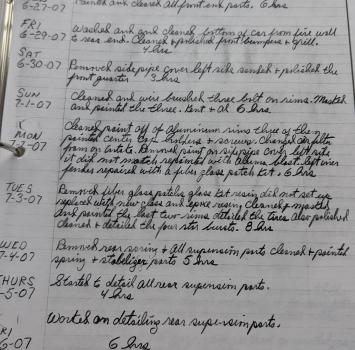 6-27-07 Painted and cleaned all front end parts. 6 hrs
FRI
6-29-07 Washed and and cleaned bottom of car from fire wall
to rear end. Cleaned & polished front bumpers & grill.
4 hrs
SAT
6-30-07 Removed sidepipe cover left side sanded & polished the
front quarter. 3 hrs
SUN
7-1-07 Cleaned and wire brushed three bolt on rims. Masked
and painted the three. Kent & Al 6 hrs
MON
7-2-07 Cleaned paint off of aluminum rims three of them
painted center caps & screws. Changed
from on Removed paint on sidepipes only left side
it did not match, repainted with left over
fender repaired with a fiber glass patch kit. 6 hrs
TUES
7-3-07 Removed fiber glass patch, glass kit resin did not set up
replaced with new glass and epoxy resin. Cleaned & masked
and painted the last two rims detailed the tires also polished
cleaned & detailed the four star bursts. 8 hrs
WED
7-4-07 Removed rear spring & all supension parts cleaned & painted
spring & stabelizer parts 5 hrs
THURS
-5-07 Started to detail all rear supension parts.
4 hrs
FRI
6-07 Worked on detailing rear supension parts.
6 hrs